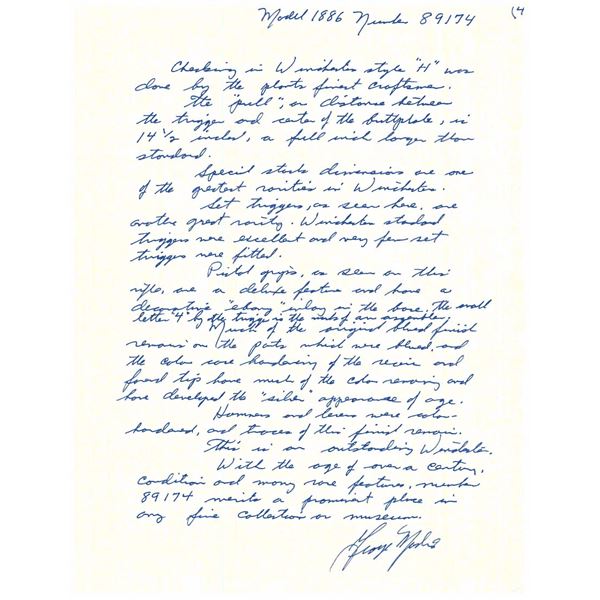 Model 1886 Number 89174 (4
Checkering in Winchester style "H" was
done by the plants finest craftsmen.
The "pull", or distance between
the trigger and center of the buttplate, is
14 1/2 inches, a full inch longer than
standard.
Special stock dimensions are one
of the greatest rarities in Winchesters.
Set triggers, as seen here, are
another great rarity. Winchester standard
triggers were excellent and very few set
triggers were fitted.
Pistol grips, as seen on this
rifle, are a deluxe feature and have a
decorative "ebony" inlay in the base. The small
letter "4" by the trigger is the mark of an assembler.
Much of the original blued finish
remains on the parts which were blued, and
the color case hardening of the receiver and
forend tip have much of the color remaining and
have developed the "silver" appearance of age.
Hammers and levers were color-
hardened, and traces of this finish remain.
This is an outstanding Winchester.
With the age of over a century,
condition and many rare features, number
89174 merits a prominent place in
any fine collection or museum.
George